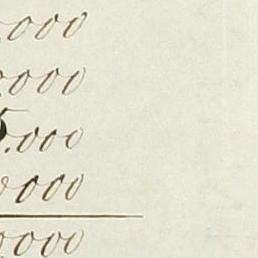 ,000
,000
5.000
0000
,000